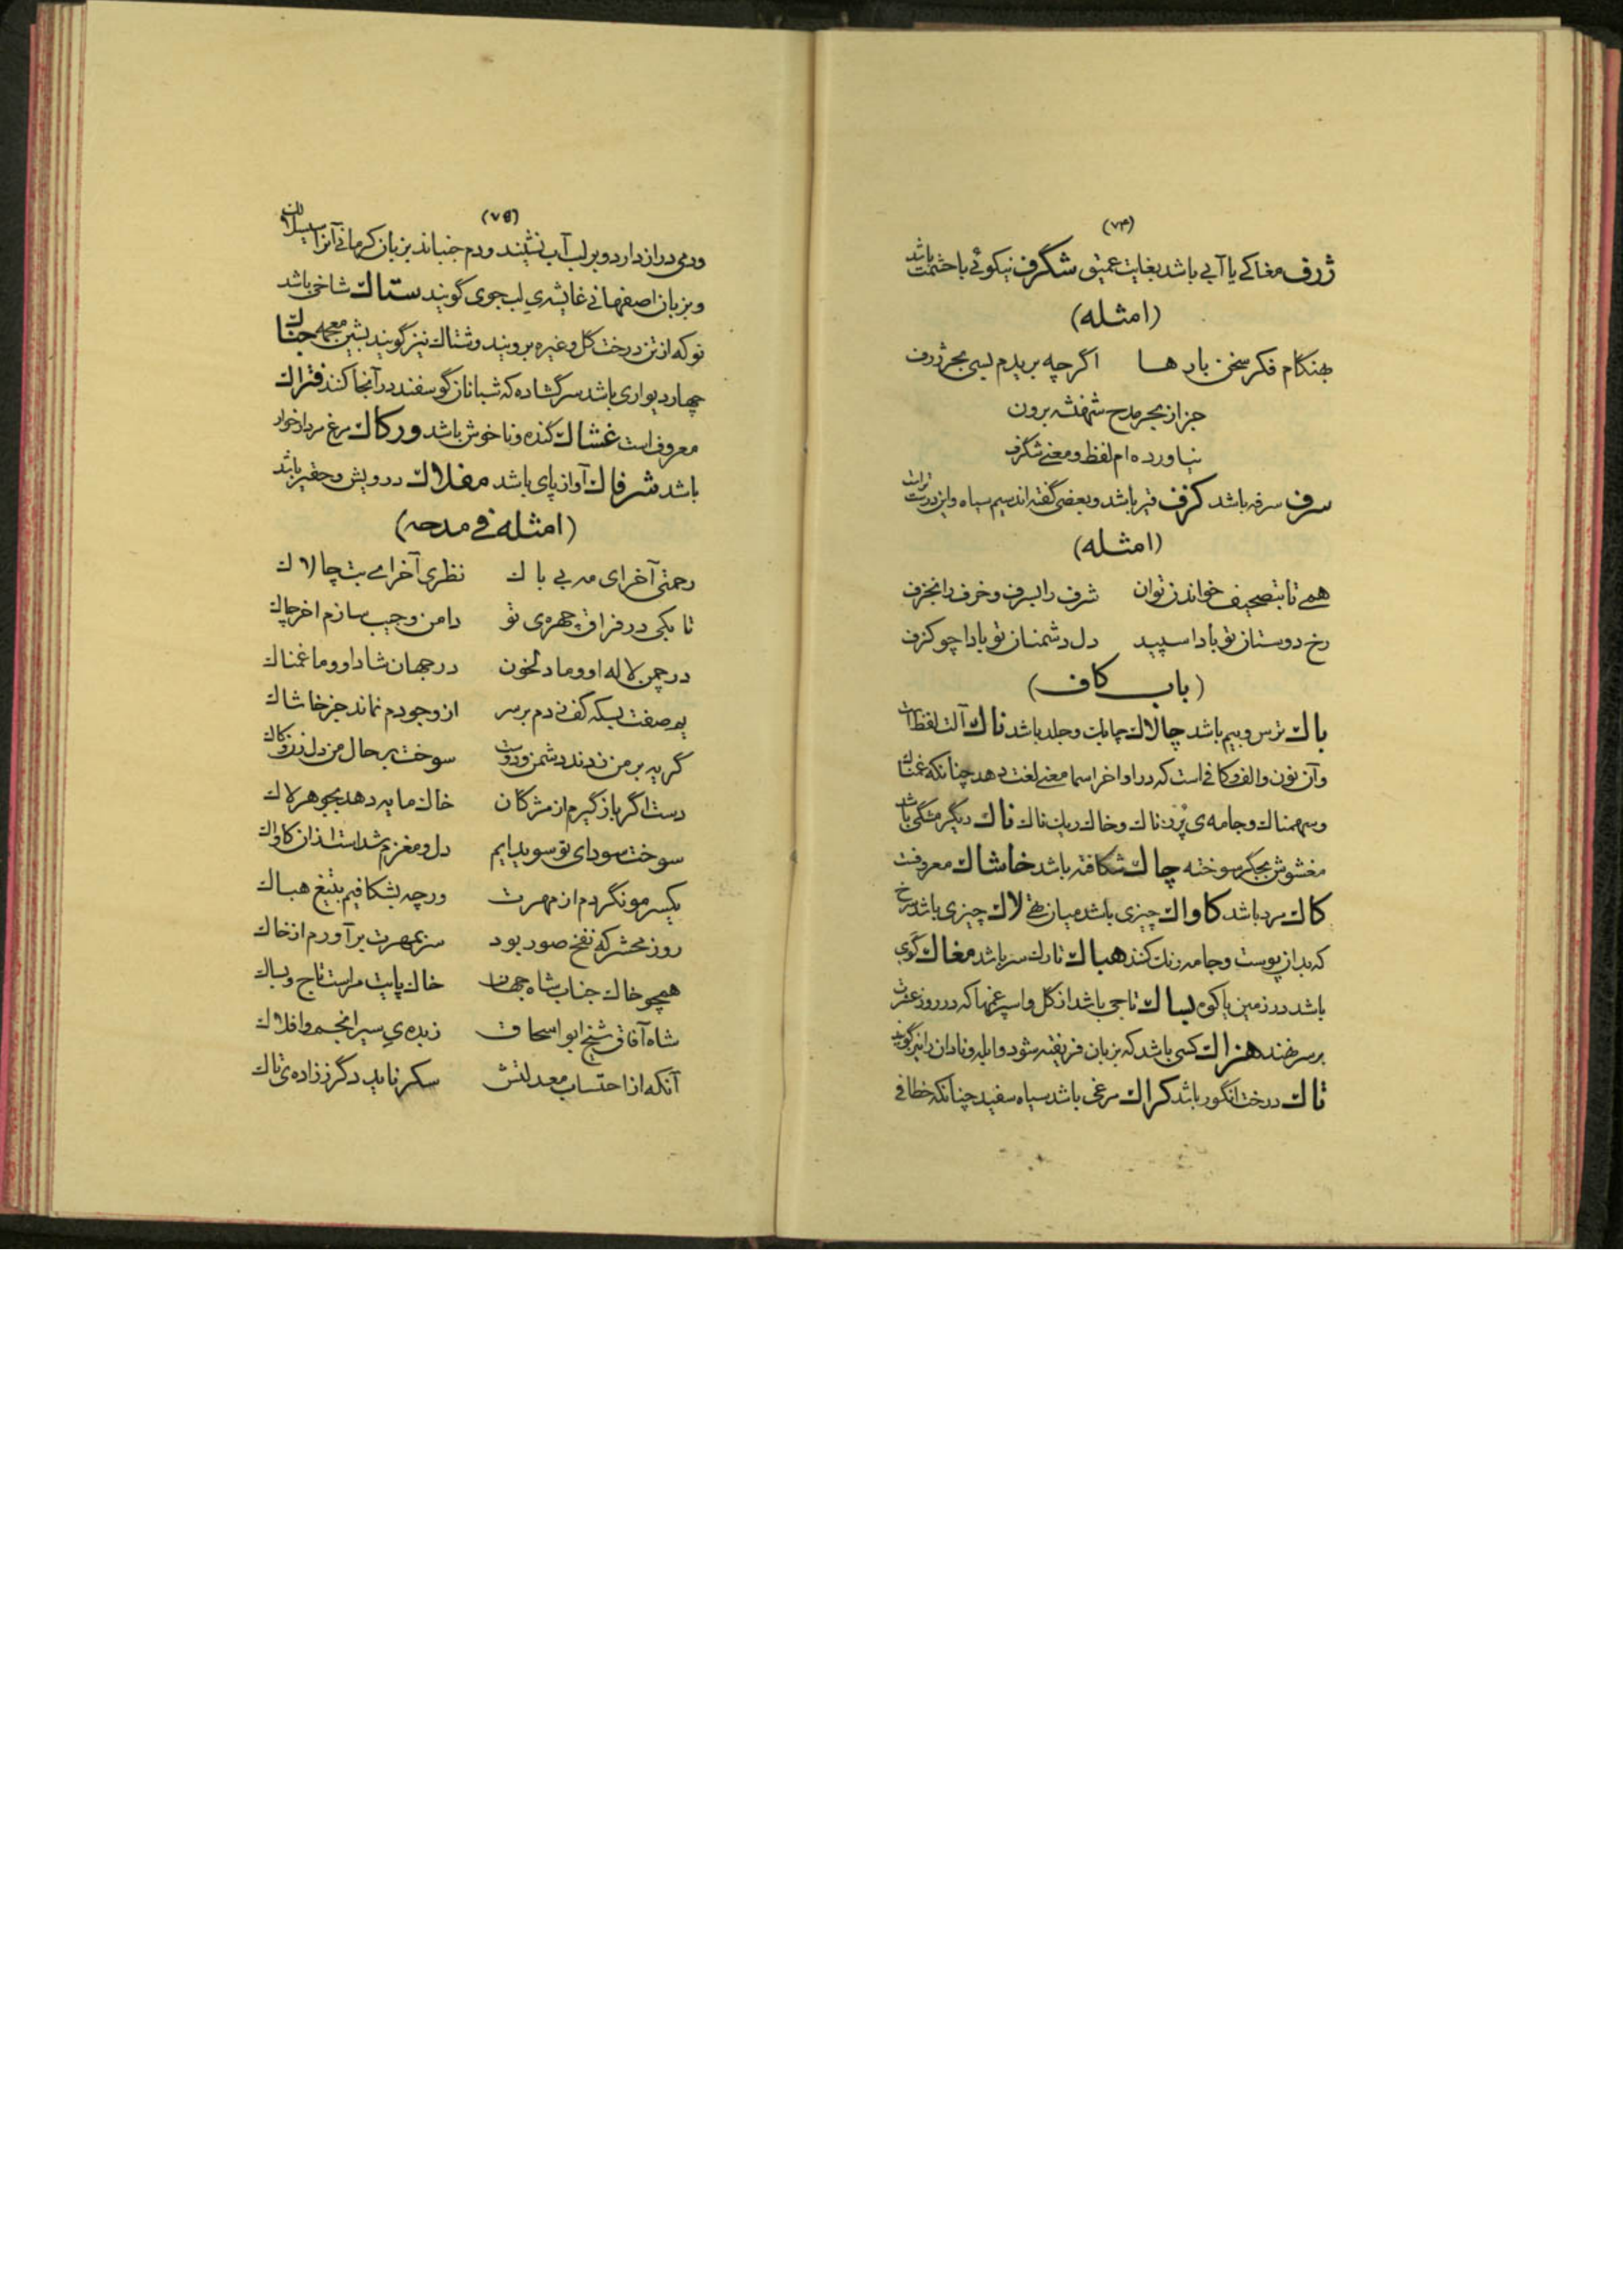 (۷۴)
ژرف مغاکی یا آبی باشد بغایت عمیق شگرف نیکوئی باحشمت باشد
(امثله)
بهنگام فکر سخن بارها اگرچه بریدم بسی بحر ژرف
جز از بحر مدح شهنشه برون
نیاورده ام لفظ و معنی شگرف
سرف سرفه باشد کژف قیر باشد و بعضی گفته اند سیم سیاه و این درست تراست
(امثله)
همی تا بتصحیف خواندن توان شرف را بسرف و خرف را بخزف
رخ دوستان تو بادا سپید دل دشمنان تو بادا چو کژف
(باب کاف)
باك ترس و بیم باشد چالاك چابك و جلد باشد ناك آلت لفظ است
و آن نون و الف و کافی است که در اواخر اسما معنی لغت دهد چنانکه غمناك
و سهمناك و جامه‌ی پرزناك و خاك ریك ناك ناك دیگر مشکی باشد
مغشوش بجگر سوخته چاك شکافته باشد خاشاك معروفست
کاك مرد باشد کاواك چیزی باشد میان تهی لاك چیزی باشد سرخ
که بدان پوست و جامه رنك کنند هباك تارك سر باشد مغاك گوی
باشد در زمین یا کوه بساك تاجی باشد از گل و اسپرغمها که در روز عشرت
بر سر نهند هزاك کسی باشد که بزبان فریفته شود و ابله و نادان را نیز گویند
تاك درخت انگور باشد کراك مرغی باشد سیاه سفید چنانکه خطافی
(۷۵)
ودمی دراز دارد و بر لب آب نشیند و دم جنباند بزبان کرمانی آنرا
و بزبان اصفهانی لب جوی گویند ستاك شاخی باشد
نو که از تن درخت گل و غیره بروید و شتاك نیز گویند بشین معجمه
چهار دیواری باشد سر گشاده که شبانان گوسفند در آنجا کنند فتراك
معروف است غشاك گنده و ناخوش باشد ورکاك مرغ مردارخوار
باشد شرفاك آواز پای باشد مفلاك درویش و حقیر باشد
(امثله فی مدحه)
رحمتی آخر ای مه بی باك نظری آخر ای بت چالاك
تا بکی در فراق چهره‌ی تو دامن و جیب سازم اخر چاك
در چمن لاله او و ما دلخون در جهان شاد او و ما غمناك
یم صفت بسکه کف زدم بر سر از وجودم نماند جز خاشاك
گریه بر من زدند دشمن و دوست سوخت بر حال من دل زن و کاك
دست اگر باز گیرم از مژگان خاك مایه دهد بجوهر لاك
سوخت سودای تو سویدایم دل و مغزم شداست از آن کاواك
یکسر مو نگردم از مهرت ورچه بشکافیم بتیغ هباك
روز محشر که نفخ صور بود سر بمهرت برآورم از خاك
همچو خاك جناب شاه جهان خاك پایت مراست تاج و بساك
شاه آفاق شیخ ابو اسحاق زبده‌ی سیر انجم و افلاك
آنکه از احتساب معدلتش سکر ناید دگر ز زاده‌ی تاك